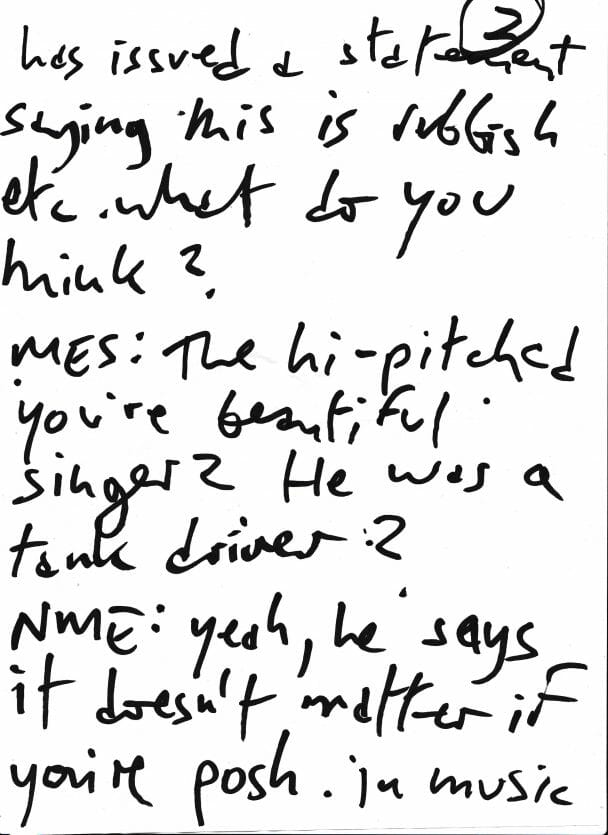 2
has issued a statement
saying this is rubbish
etc. what do you
think?
MES: The hi-pitched
you're beautiful
singer? He was a
tank driver?
NME: yeah, he says
it doesn't matter if
you're posh. in music